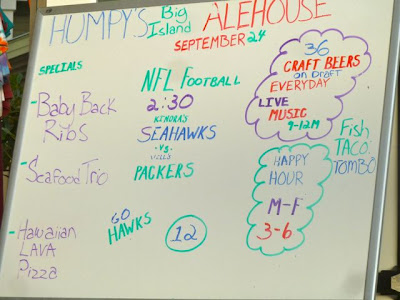 HUMPY'S Big Island ALEHOUSE
SEPTEMBER 24
SPECIALS
-Baby Back
Ribs
-Seafood Trio
-Hawaiian
LAVA
Pizza
NFL FOOTBALL
2:30
KENDRA'S
SEAHAWKS
-VS-
PACKERS
GO
HAWKS
12
36
CRAFT BEERS
on Draft
EVERYDAY
LIVE
MUSIC
9-12M
Fish
TACO
TOMBO
HAPPY
HOUR
M-F
3-6